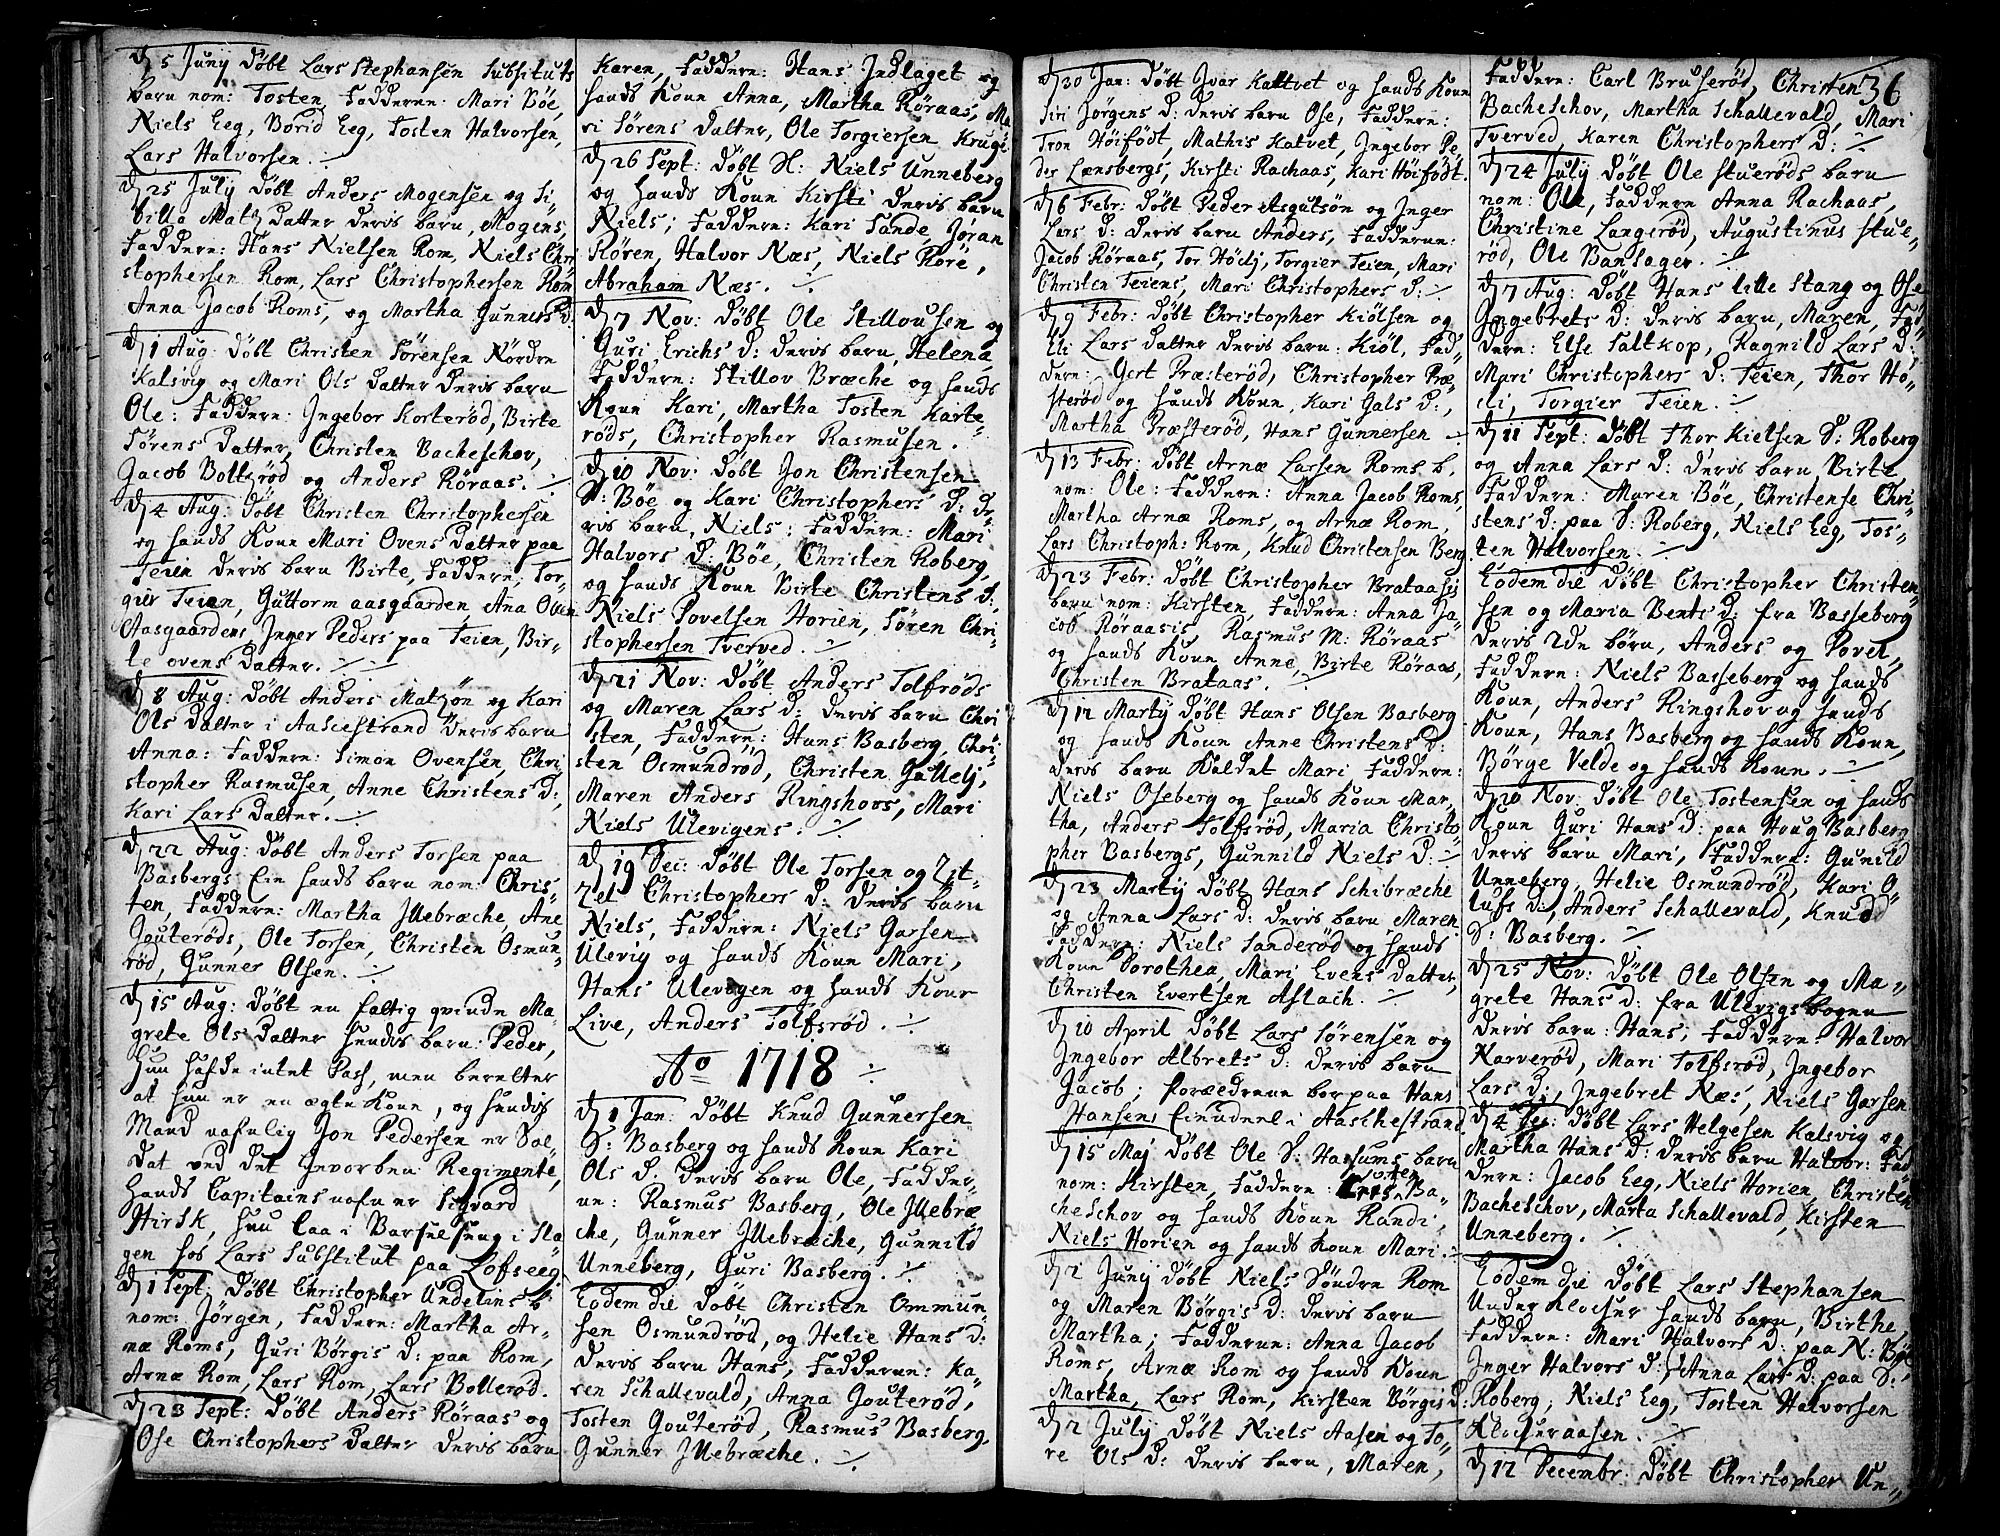 D 5 Junÿ Døbt Lars Stephansen Substituts
barn nom: Tosten, Faddere: Mari Bøe,
Niels Eeg, Børid Eeg, Tosten Halvorsen,
Lars Halvorsen. ·/·
D 25 Julÿ Døbt Anders Mogensen og Si-
billa Matz datter deris barn, Mogens,
Faddere: Hans Nielsen Rom, Niels Chri
stophersen Rom, Lars Christophersen Rom
Anna Jacob Roms, og Martha Gunners D.
D 1 Aug: Døbt Christen Sørensen Nordre
Kalsvig og Mari Ols datter deris barn
Ole: Faddere: Ingebor Korterød, Birte
Sørens datter, Christen Bacheschov,
Jacob Bollerød og Anders Røraas. ·/·
D 4 Aug: Døbt Christen Christophersen
og hands Kone Mari Ovens datter paa
Teien deris barn Birte, Faddere, Tor-
gier Teien, Guttorm aasgaarden, Ana Oven
Aasgaardens, Inger Peders paa Teien, Bir-
te ovens datter. ·/·
D 8 Aug: Døbt Anders Matzøn og Kari
Ols datter i Aaschestrand deris barn
Anna: Faddere: Simon Ovensen, Chri
stopher Rasmusen, Anne Christens D:,
Kari Lars datter. ·/·
D 22 Aug: Døbt Anders Torsen paa
Basbergs Eie hands barn nom: Chris-
ten, Faddere: Martha Illebræche, Ane
Gouterøds, Ole Torsen, Christen Osmun-
rød, Gunner Olsen. ·/·
D 15 Aug: Døbt en fattig qvinde Ma-
grete Ols datter hendis barn: Peder,
hun hafde intet Pass, men beretter
at hun er en ægte Kone, og hendis
Mand nafnlig Jon Pedersen er Sol-
dat ved det Gevorbne Regimente,
hands Capitains nafn er Sifvard
Hirsk, hun laa i Barselseng i Sla
gen hos Lars Substitut paa Løfseeg.
D 1 Sept. Døbt Christopher Undelins b.
nom: Jørgen, Faddere: Martha Ar-
næ Roms, Guri Børgis D: paa Rom,
Arnæ Rom, Lars Rom, Lars Bollerød.
D 23 Sept: Døbt Anders Røraas og
Ose Christophers datter deris barn
Karen, Faddere: Hans Indlaget og
hands Kone Anna, Martha Røraas, Ma
ri Sørens datter, Ole Torgiersen Kruge
D 26 Sept: Døbt H: Niels Unneberg
og hands Kone Kirsti deris barn
Niels, Faddere: Kari Sande, Jøran
Røren, Halvor Næs, Niels Røre,
Abraham Næs. ·/·
D 7 Nov: Døbt Ole Stillousen og
Guri Erichs D: deris barn, Helena,
Faddere: Stillov Bræche og hands
Kone Kari, Martha Tosten Karte-
røds, Christopher Rasmusen.
D 10 Nov: Døbt Jon Christensen
S: Bøe og Kari Christophers D: de-
ris barn, Niels: Faddere: Mari
Halvors D: Bøe, Christen Roberg,
og hands Kone Birte Christens D:
Niels Povelsen Horien, Søren Chri-
stophersen Tverved. ·/·
D 21 Nov: Døbt Anders Tolfrøds
og Maren Lars D: deris barn Chri
sten, Faddere: Hans Basberg, Chri-
sten Osmundrød, Christen Gallelj,
Maren Anders Ringshovs, Mari
Niels Ulevigens. ·/·
D 19 Dec: Døbt Ole Torsen og Zit-
zel Christophers D: deris barn
Niels, Faddere: Niels Garsen
Ulevig og hands Kone Mari,
Hans Ulevigen og hands Kone
Live, Anders Tolfsrød. ·/·
Ao 1718 ·/·
D 1 Jan: Døbt Knud Gunnersen
S: Basberg og hands Kone Kari
Ols D. deris barn Ole, Fadder-
ne: Rasmus Basberg, Ole Illebræ
che, Gunner Illebræche, Gunnild
Unneberg, Guri Basberg. ·/·
Eodem die døbt Christen Ommun-
sen Osmundrød, og Helie Hans D:
deris barn Hans, Fadderne: Ka-
ren Schallevald, Anna Gouterød,
Tosten Gouterød, Rasmus Basberg,
Gunner Illebræche. ·/·
D 30 Jan: Døbt Ivar Kattvet og hands Kone
Siri Jørgens D: deris barn Ose, Faddere:
Tron Høifødt, Mathis Katvet, Ingebor Pe
der Lænsbergs, Kirsti Rachaas, Kari Høifødt.
D 6 Febr: Døbt Peder Asgutsøn og Inger
Lars D: deris barn Anders, Fadderne:
Jacob Røraas, Tor Hødj, Torgier Teien, Mari
Christen Teiens, Mari Christophers D: ·/·
D 9 Febr: Døbt Christopher Kiølsen og
Eli Lars datter deris barn: Kiøl, Fad-
dere: Gert Præsterød, Christopher Præ-
sterød og hands Kone, Kari Gals D:,
Martha Præsterød, Hans Gunnersen
D 13 Febr: Døbt Arnæ Larsen Roms b.
nom: Ole: Faddere: Anna Jacob Roms,
Martha Arnæ Roms, og Arnæ Rom,
Lars Christoph: Rom, Knud Christensen Berg
D 23 Febr: Døbt Christopher Brataasis
barn nom: Kirsten, Faddere: Anna Ja-
cob Røraasis, Rasmus M: Røraas
og hands Kone Anne, Birte Røraas,
Christen Brataas. ·/·
D 12 Martÿ Døbt Hans Olsen Basberg
og hands Kone Anne Christens D:
deris barn Kaldet Mari, Faddere:
Niels Oseberg og hands Kone Mar-
tha, Anders Tolfsrød, Maria Christo-
pher Basbergs, Gunnild Niels D: ·/·
D 23 Martÿ Døbt Hans Schibræche
og Anna Lars D: deris barn, Maren
Faddere: Niels Sanderød og hands
Kone Dorothea, Mari Evens datter,
Christen Evertsen Aslach. ·/·
D 10 April Døbt Lars Sørensen og
Ingebor Albrets D: deris barn
Jacob; foræedrene bor paa Hans
Hansens Eiendeel i Aaschestrand.
D 15 Maj Døbt Ole S: Hassums barn
nom: Kirsten, Faddere: Chresten Ba-
cheschov og hands Kone Randi,
Niels Horien og hands Kone Mari. ·/·
D 2 Junÿ Døbt Niels Søndre Rom
og Maren Børgis D: deris barn
Martha; Fadderne: Anna Jacob
Roms, Arnæ Rom og hands Kone
Martha, Lars Rom, Kirsten Børgis D:
D 2 Julÿ Døbt Niels Aasen og To-
re Ols D: deris barn, Maren,
36
Faddere: Carl Bruserød, Christen
Bacheschov, Martha Schallevald, Mari
Tverved, Karen Christophers D: ·/·
D 24 Julÿ Døbt Ole Stuerøds barn
nom: Ole, Faddere Anna Rachaas,
Christine Langerød, Augustinus Stue-
rød, Ole Bansager. ·/·
D 7 Aug: Døbt Hans lille Stang og Ose
Ingebrets D: deris barn, Maren, Fad-
dere: Else Saltkop, Ragnild Lars D:
Mari Christophers D: Teien, Thor Hø-
di, Torgier Teien. ·/·
D 11 Sept: Døbt Thor Kielsen S: Roberg
og Anna Lars D: deris barn, Birte
Faddere: Maren Bøe, Christense Chri-
stens D: paa S: Roberg, Niels Eeg, Tos-
ten Halvorsen. ·/·
Eodem die Døbt Christopher Christen-
sen og Maria Bents D: fra Basseberg
deris 2de børn, Anders og Povel,
Faddere: Niels Basseberg og hands
Kone, Anders Ringshov og hands
Kone, Hans Basberg og hands Kone,
Børge Velde og hands Kone. ·/·
D 20 Nov. Døbt Ole Tostensen og hands
Kone Guri Hans D: paa Houg Basberg
deris barn Mari, Faddere: Gunild
Unneberg, Helie Osmundrød, Kari O-
lufs D:, Anders Schallevald, Knud
S: Basberg. ·/·
D 25 Nov: Døbt Ole Olsen og Ma-
grete Hans D: fra Ulevigsbogen
deris barn: Hans, Faddere: Halvor
Narverød, Mari Tolfsrød, Ingebor
Lars D:, Ingebret Næs, Niels Garsen
D 4 Dec: Døbt Lars Helgesen Kalsvig og
Martha Hans D: deris barn Halvor: Fad
dere: Jacob Eeg, Niels Horien, Christen
Bacheschov, Marta Schallevald, Kirsten
Unneberg. ·/·
Eodem die Døbt Lars Stephansen
Under Klocher hands barn, Birthe,
Faddere: Mari Halvors D: paa N: Bøe
Inger Halvors D:, Anna Lars D: paa S:
Roberg, Niels Eeg, Tosten Halvorsen
Klocheraasen. ·/·
D 12 Decembr: Døbt Christopher Un-